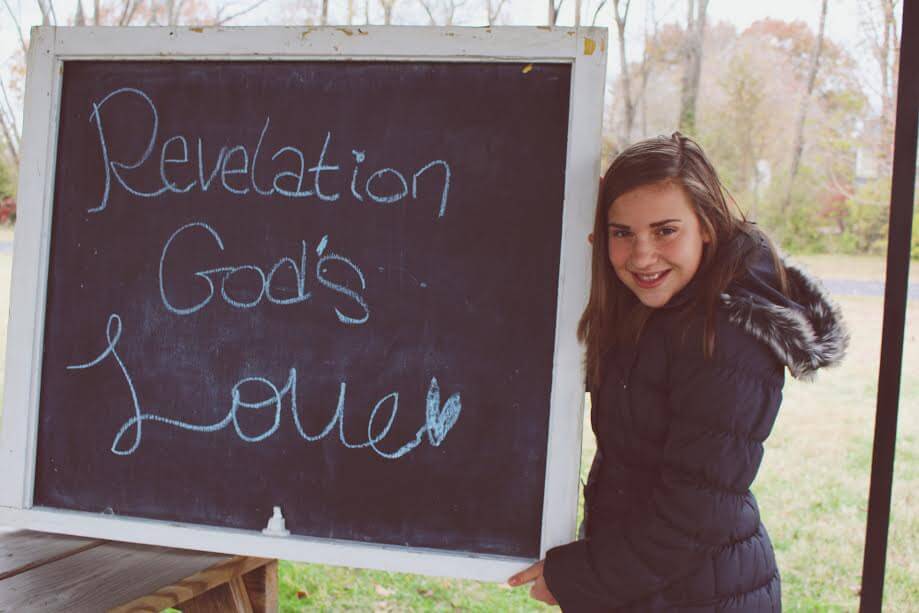 Revelation
God's
Love